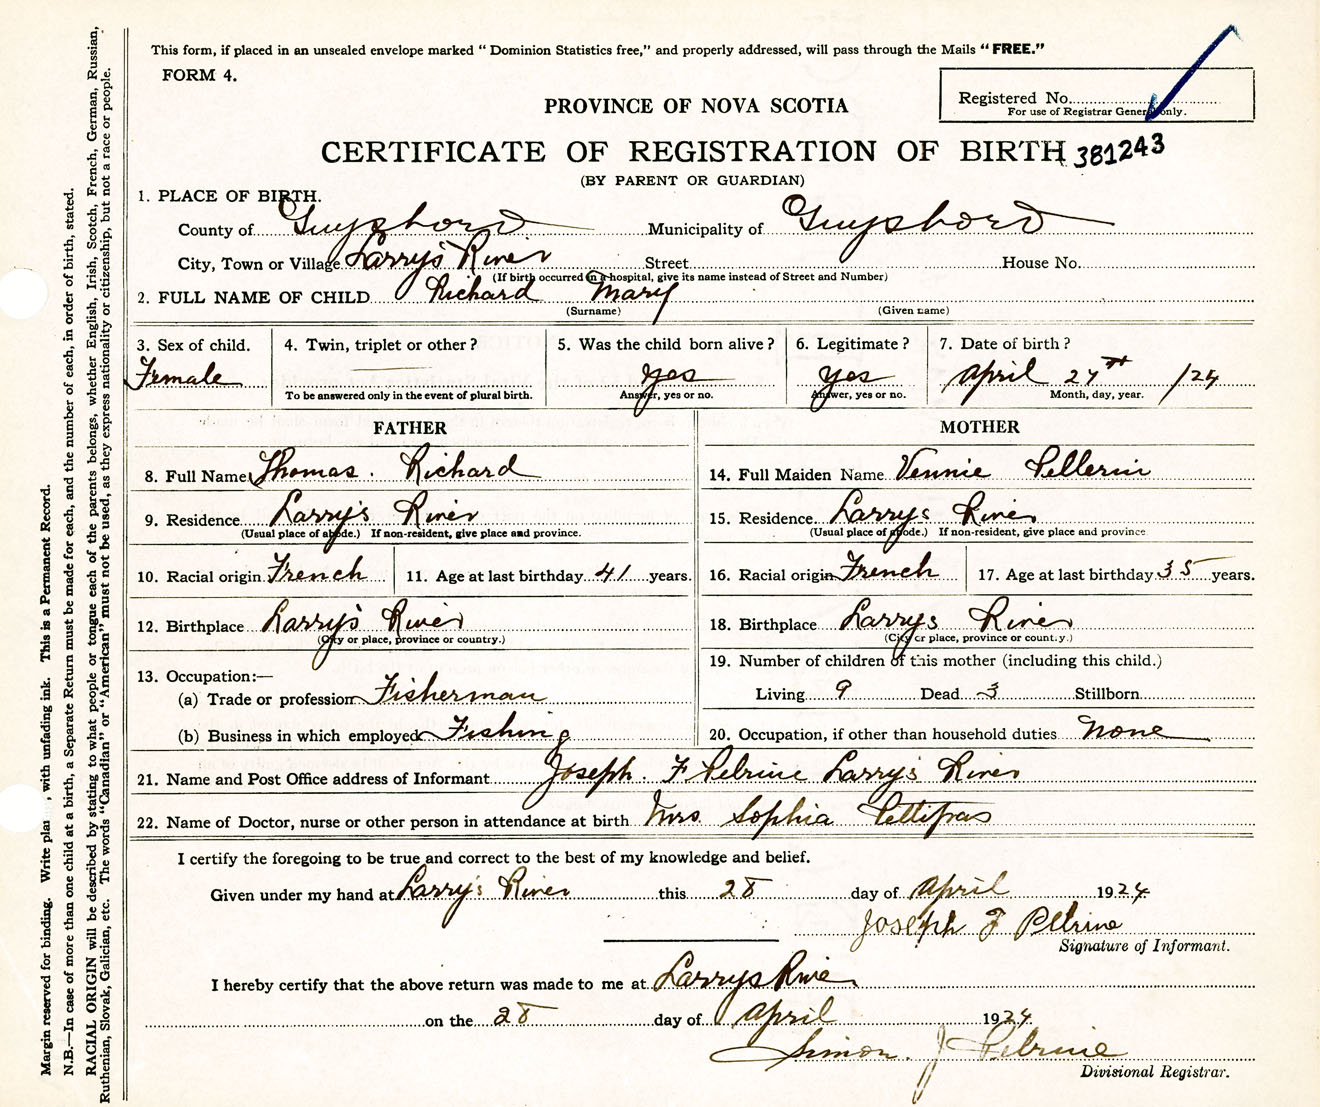 This form, if placed in an unsealed envelope marked “ Dominion Statistics free,” and properly addressed, will pass through the Mails “ FREE.”
FORM 4.
PROVINCE OF NOVA SCOTIA
Registered No.
For use of Registrar General only.
CERTIFICATE OF REGISTRATION OF BIRTH 381243
(BY PARENT OR GUARDIAN)
1. PLACE OF BIRTH.
County of Guysboro Municipality of Guysboro
City, Town or Village Larry's River Street House No.
(If birth occurred in a hospital, give its name instead of Street and Number)
2. FULL NAME OF CHILD Richard Mary
(Surname) (Given name)
3. Sex of child. 4. Twin, triplet or other ? 5. Was the child born alive ? 6. Legitimate ? 7. Date of birth ?
Female yes yes April 27th /24
To be answered only in the event of plural birth. Answer, yes or no. Answer, yes or no. Month, day, year.
FATHER MOTHER
8. Full Name Thomas. Richard 14. Full Maiden Name Vennie Pellerin
9. Residence Larry's River 15. Residence Larrys River
(Usual place of abode.) If non-resident, give place and province. (Usual place of abode.) If non-resident, give place and province
10. Racial origin French 11. Age at last birthday 41 years. 16. Racial origin French 17. Age at last birthday 35 years.
12. Birthplace Larry's River 18. Birthplace Larrys River
(City or place, province or country.) (City or place, province or country.)
19. Number of children of this mother (including this child.)
13. Occupation:—
(a) Trade or profession Fisherman Living 9 Dead 3 Stillborn
(b) Business in which employed Fishing 20. Occupation, if other than household duties None
21. Name and Post Office address of Informant Joseph. F Pelrine Larry's River
22. Name of Doctor, nurse or other person in attendance at birth Mrs. Sophia Pettipas
I certify the foregoing to be true and correct to the best of my knowledge and belief.
Given under my hand at Larry's River this 28 day of April 1924
Joseph F Pelrine
Signature of Informant.
I hereby certify that the above return was made to me at Larrys River
on the 28 day of April 1924
Simon. J Pelrine
Divisional Registrar.
Margin reserved for binding. Write plai , with unfading ink. This is a Permanent Record.
N.B.—In case of more than one child at a birth, a Separate Return must be made for each, and the number of each, in order of birth, stated.
RACIAL ORIGIN will be described by stating to what people or tongue each of the parents belongs, whether English, Irish, Scotch, French, German, Russian,
Ruthenian, Slovak, Galician, etc. The words “Canadian” or “American” must not be used, as they express nationality or citizenship, but not a race or people.